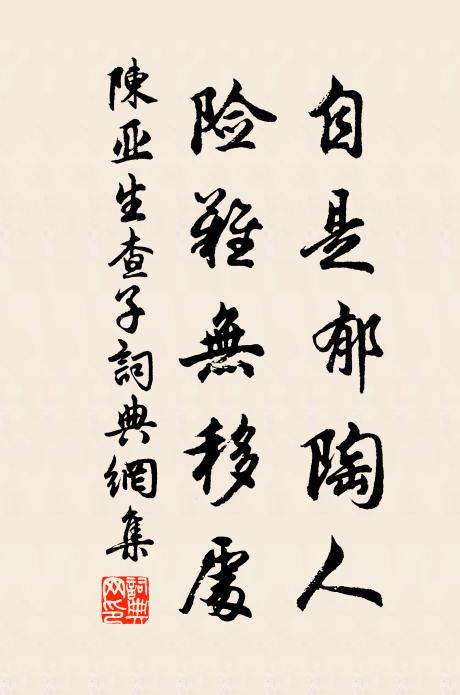 自是郁陶人
险難無移處
陳亚生查子詞典網集
詞典网印